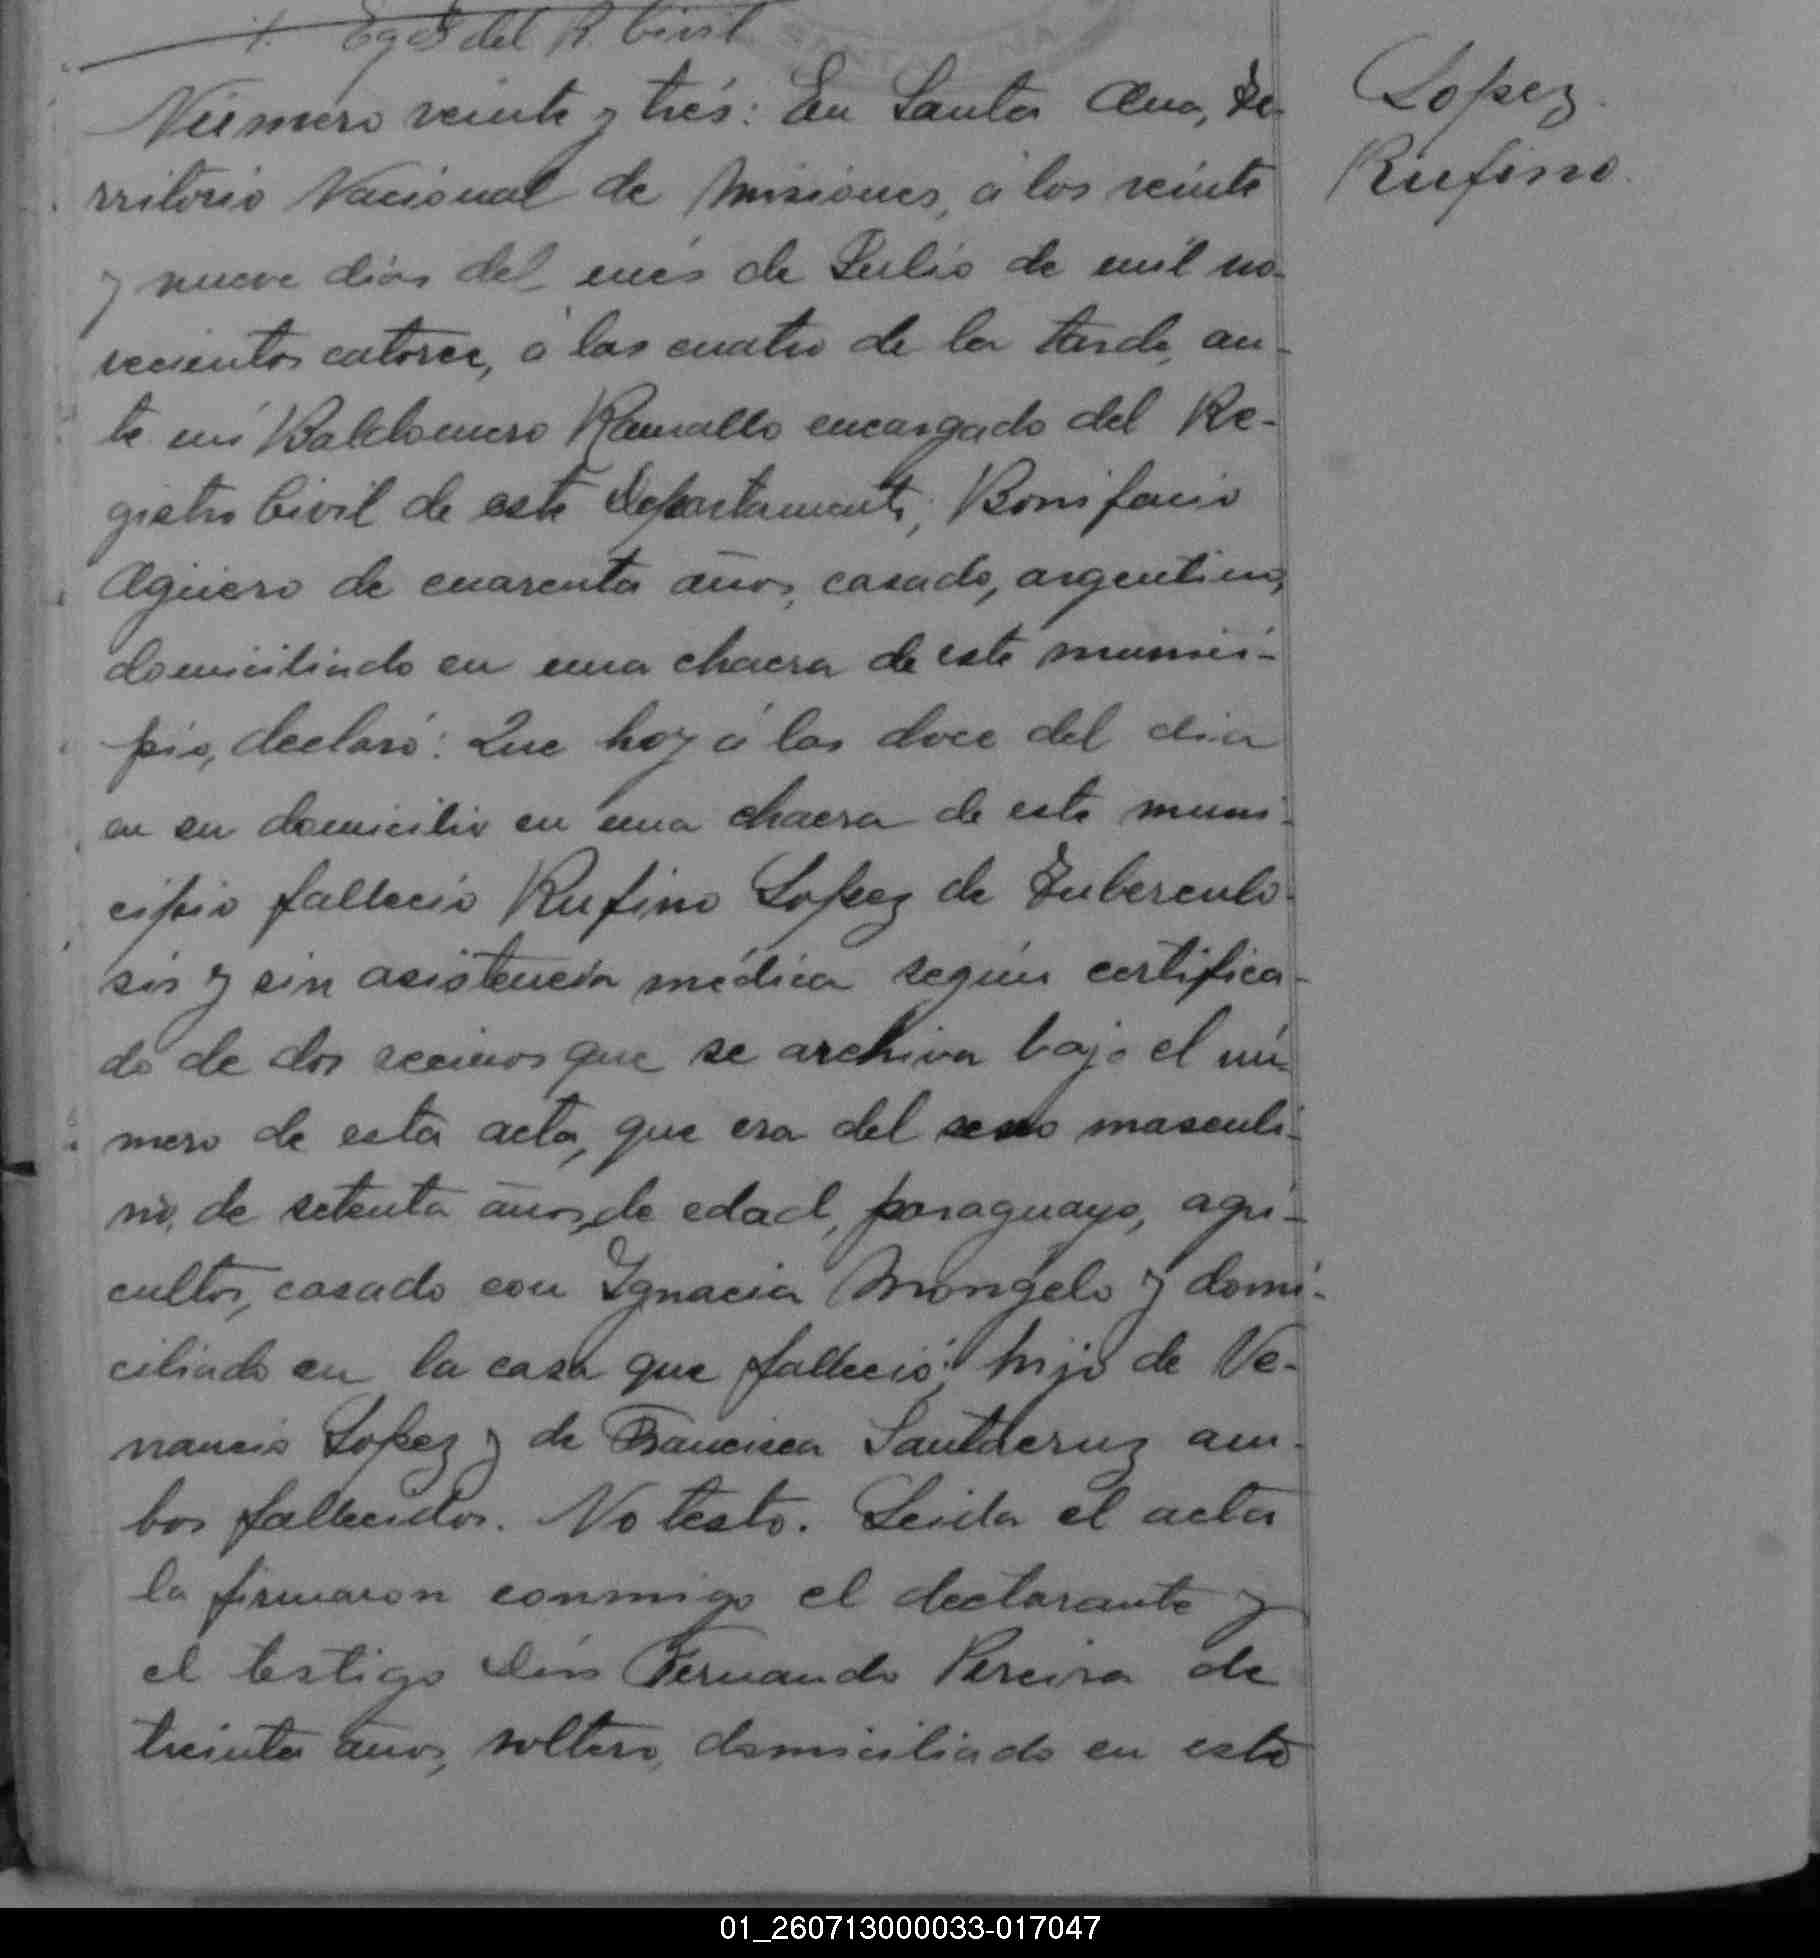 Egdo del R. Civil
Número veinte y trés: En Santa Ana, Te-
rritorio Nacional de Misiones, á los veinte
y nueve dias del més de Julio de mil no-
vecientos catorce, á las cuatro de la tarde, an-
te mí Baldomero Ramallo encargado del Re-
gistro Civil de este Departamento, Bonifacio
Agüero de cuarenta años, casado, argentino,
domiciliado en una chacra de este munici-
pio, declaró: Que hoy á las doce del dia
en su domicilio en una chacra de este muni-
cipio falleció Rufino Lopez de Tuberculo-
sis y sin asistencia médica según certifica-
do de dos vecinos que se archiva bajo el nú-
mero de esta acta, que era del sexo masculi-
no, de setenta años de edad, paraguayo, agri-
cultor, casado con Ignacia Mongelo y domi-
ciliado en la casa que falleció; hijo de Ve-
nancio Lopez y de Francisca Santacruz am-
bos fallecidos. No testo. Leida el acta
la firmaron conmigo el declarante y
el testigo Don Fernando Pereira de
treinta años, soltero, domiciliado en este
Lopez
Rufino.
01_260713000033-017047